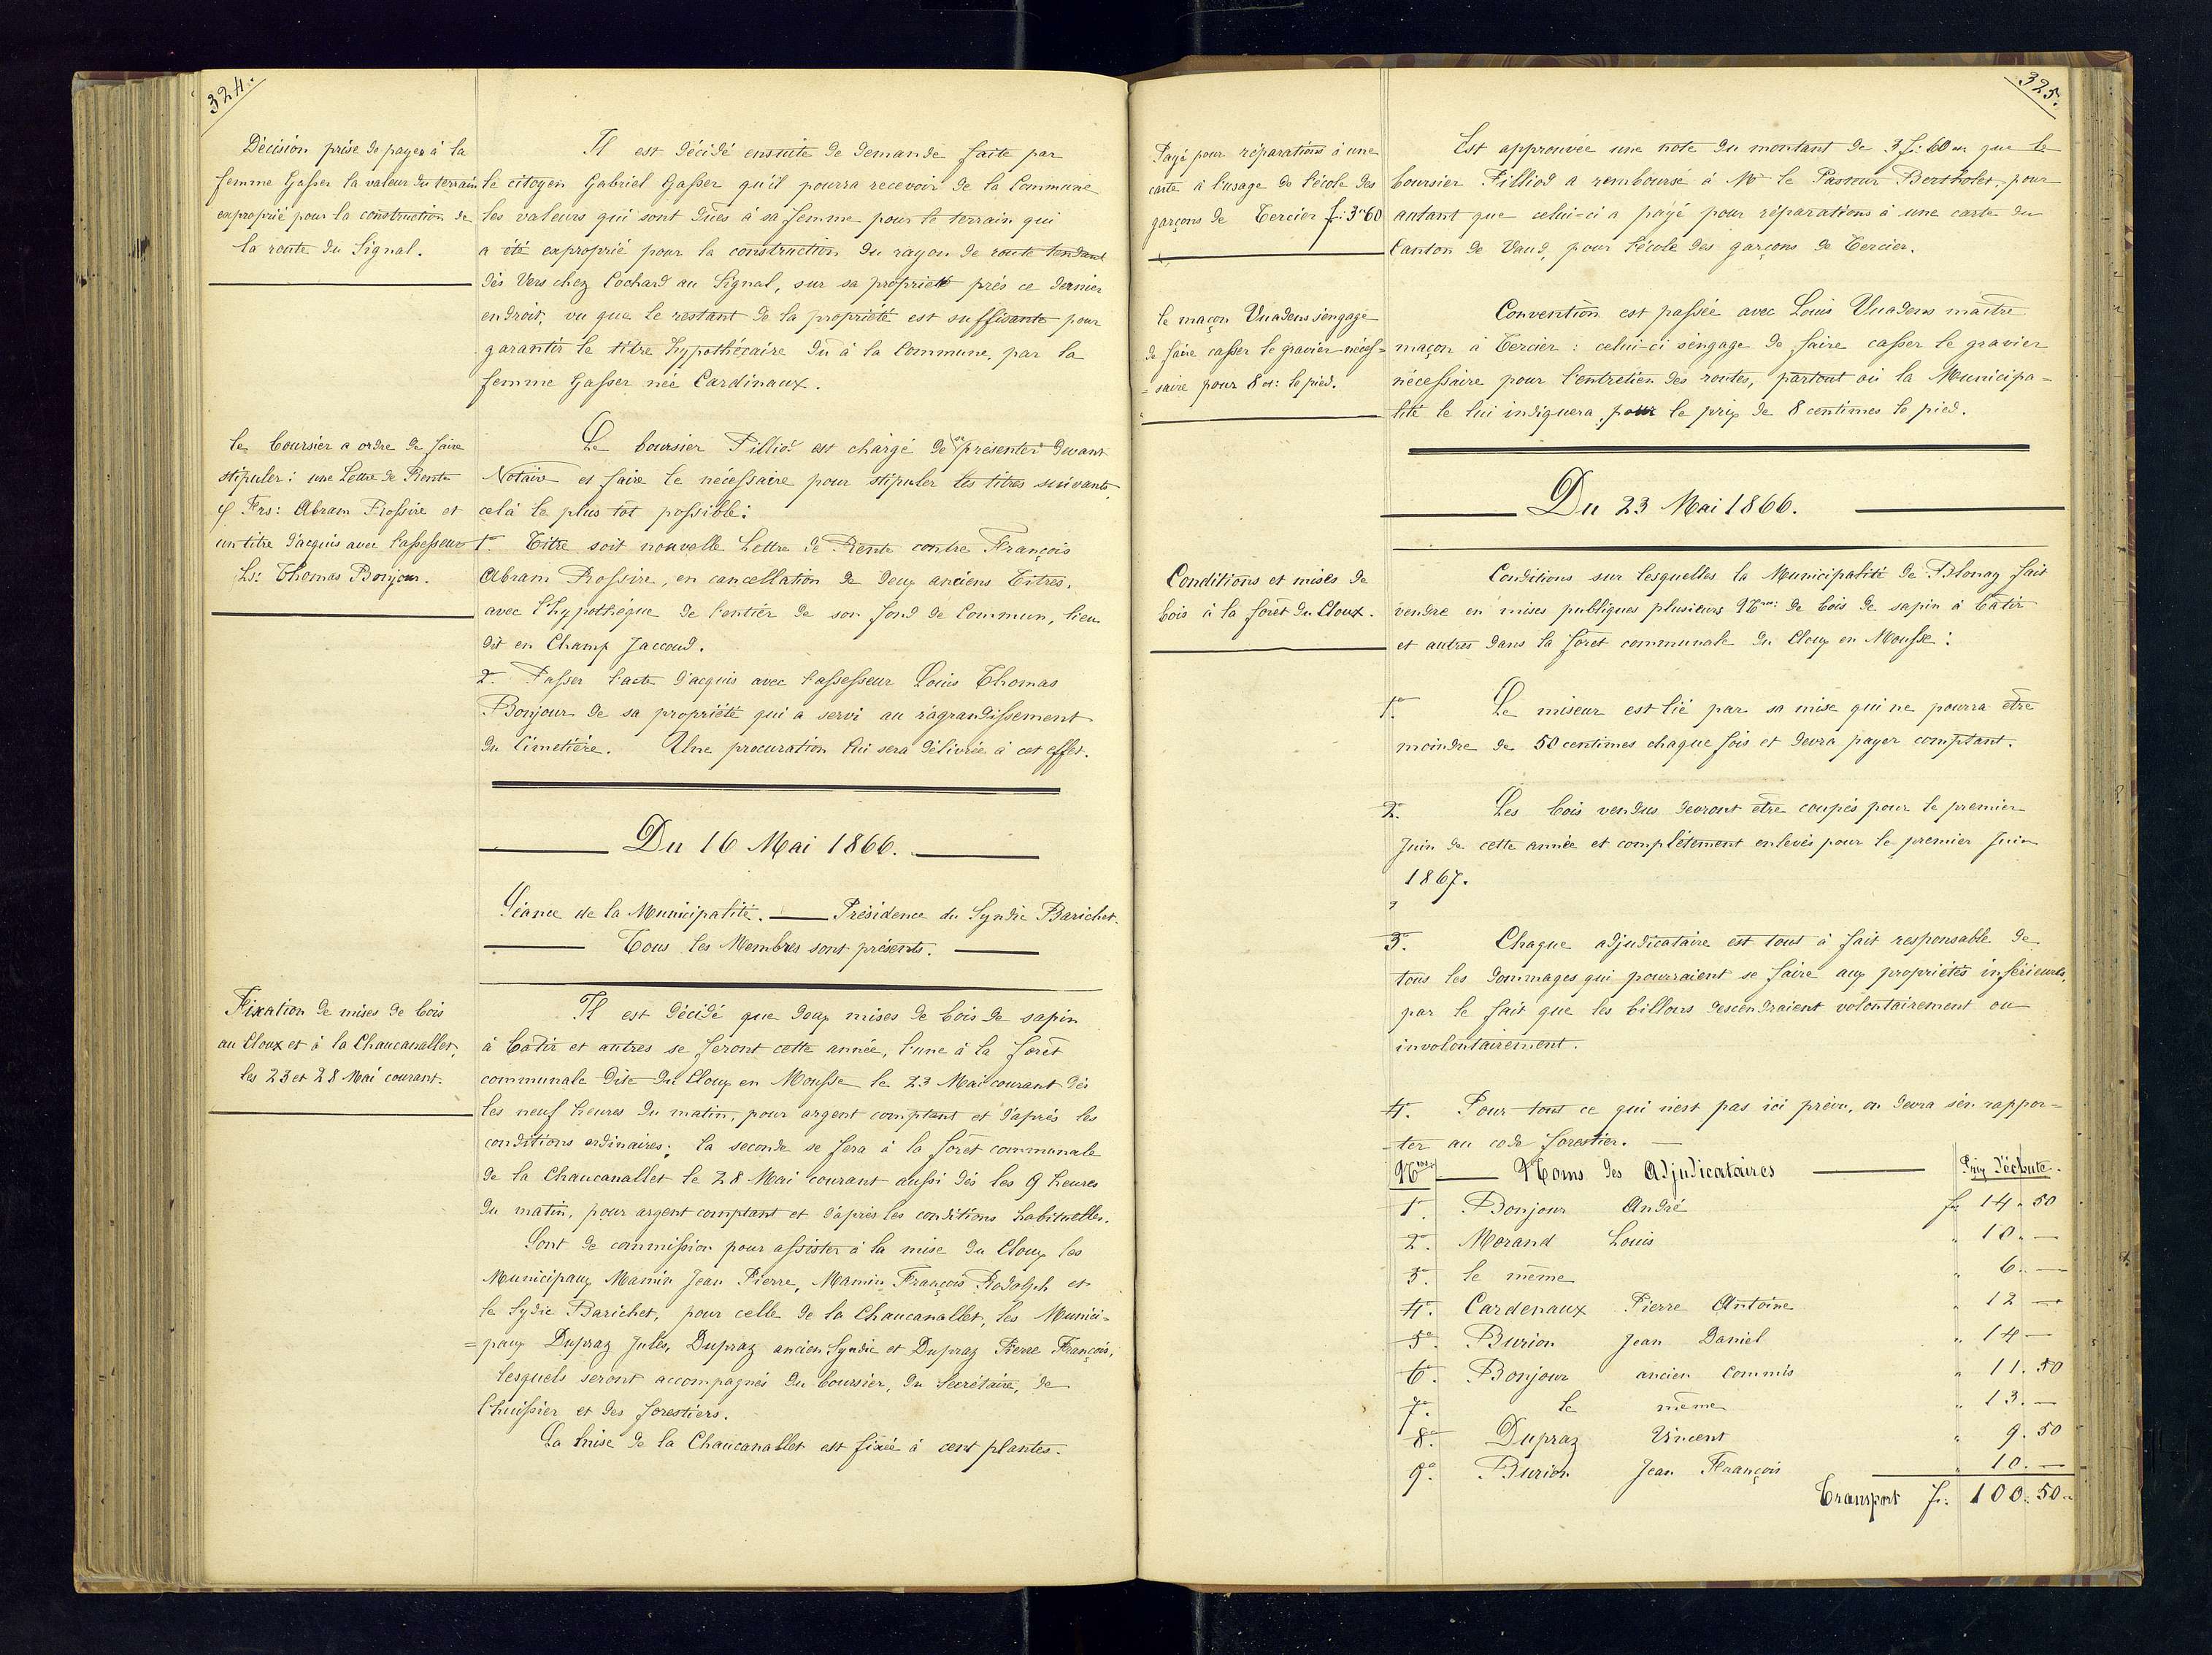 324.
Décision prise de payer à la
femme Gasser la valeur du terrain
exproprié pour la construction de
la route du Signal.
Il est décidé ensuite de demande faite par
le citoyen Gabriel Gasser qu'il pourra recevoir de la Commune
les valeurs qui sont dûes à sa femme pour le terrain qui
a été exproprié pour la construction du rayon de route tendant
dès Vers chez Cochard au Signal, sur sa propriété près ce dernier
endroit, vu que le restant de la propriété est suffisante pour
garantir le titre hypothécaire dû à la Commune, par la
femme Gasser née Cardinaux.
Le boursier a ordre de faire
stipuler: une Lettre de Rente
Frs: Abram Rossire et
un titre d'acquis avec l'assesseur
Ls: Thomas Bonjour.
Le boursier Filliod est chargé de se présenter devant
Notaire et faire le nécessaire pour stipuler les titres suivants,
celà le plus tôt possible:
1o. Titre soit nouvelle Lettre de Rente contre François
Abram Rossire, en cancellation de deux anciens Titres,
avec l'hypothèque de l'entier de son fond de Commun, lieu
dit en Champ Jaccoud.
2o. Passer l'acte d'acquis avec l'assesseur Louis Thomas
Bonjour de sa propriété qui a servi au ragrandissement
du Cimetière. Une procuration lui sera délivrée à cet effet.
Du 16 Mai 1866.
Séance de la Municipalité. Présidence du Syndic Barichet.
Tous les Membres sont présents.
Fixation de mises de bois
au Cloux et à la Chaucanallet,
les 23 et 28 Mai courant.
Il est décidé que deux mises de bois de sapin
à bâtir et autres se feront cette année, l'une à la forêt
communale dite du Cloux en Mousse le 23 Mai courant dès
les neuf heures du matin, pour argent comptant et d'après les
conditions ordinaires; la seconde se fera à la forêt communale
de la Chaucanallet le 28 Mai courant aussi dès les 9 heures
du matin, pour argent comptant et d'après les conditions habituelles.
Sont de commission pour assister à la mise du Cloux les
Municipaux Mamin Jean Pierre, Mamin François Rodolph et
le Sydic Barichet, pour celle de la Chaucanallet, les Munici=
=paux Dupraz Jules, Dupraz ancien Syndic et Dupraz Pierre François,
lesquels seront accompagnés du boursier, du Secrétaire, de
l'huissier et des forestiers.
La mise de la Chaucanallet est fixée à cent plantes.
325.
Payé pour réparations à une
carte à l'usage de l'école des
garçons de Tercier fr: 3"60
Est approuvée une note du montant de 3 fr: 60 cs que le
boursier Filliod a remboursé à Mr le Pasteur Bertholet, pour
autant que celui-ci a payé pour réparations à une carte du
Canton de Vaud, pour l'école des garçons de Tercier.
Le maçon Vuadens s'engage
de faire casser le gravier néces=
=saire pour 8 ct: le pied.
Convention est passée avec Louis Vuadens maître
maçon à Tercier: celui-ci s'engage de faire casser le gravier
nécessaire pour l'entretien des routes, partout où la Municipa=
lité le lui indiquera, pour le prix de 8 centimes le pied.
Du 23 Mai 1866.
Conditions et mises de
bois à la forêt du Cloux.
Conditions sur lesquelles la Municipalité de Blonay fait
vendre en mises publiques plusieurs Nos: de bois de sapin à bâtir
et autres dans la forêt communale du Cloux en Mousse:
1o. Le miseur est lié par sa mise qui ne pourra être
moindre de 50 centimes chaque fois et devra payer comptant.
2o. Les bois vendus devront être coupés pour le premier
Juin de cette année et complètement enlevés pour le premier Juin
1867.
3o. Chaque adjudicataire est tout à fait responsable de
tous les dommages qui pourraient se faire aux propriétés inférieures,
par le fait que les billons descendraient volontairement ou
involontairement.
4o. Pour tout ce qui n'est pas ici prévu, on devra s'en rappor=
ter au code forestier.
Nos: Noms des Adjudicataires Prix d'échute.
1o. Bonjour André fr 14. 50
2o. Morand Louis " 10. —
3o. le même " 6. —
4o. Cardenaux Pierre Antoine " 12 —
5o. Burion Jean Daniel " 14 —
6o. Bonjour ancien Commis " 11. 50
7o. le même " 13. —
8o. Dupraz Vincent " 9. 50
9o. Burion Jean François " 10. —
Transport fr: 100. 50